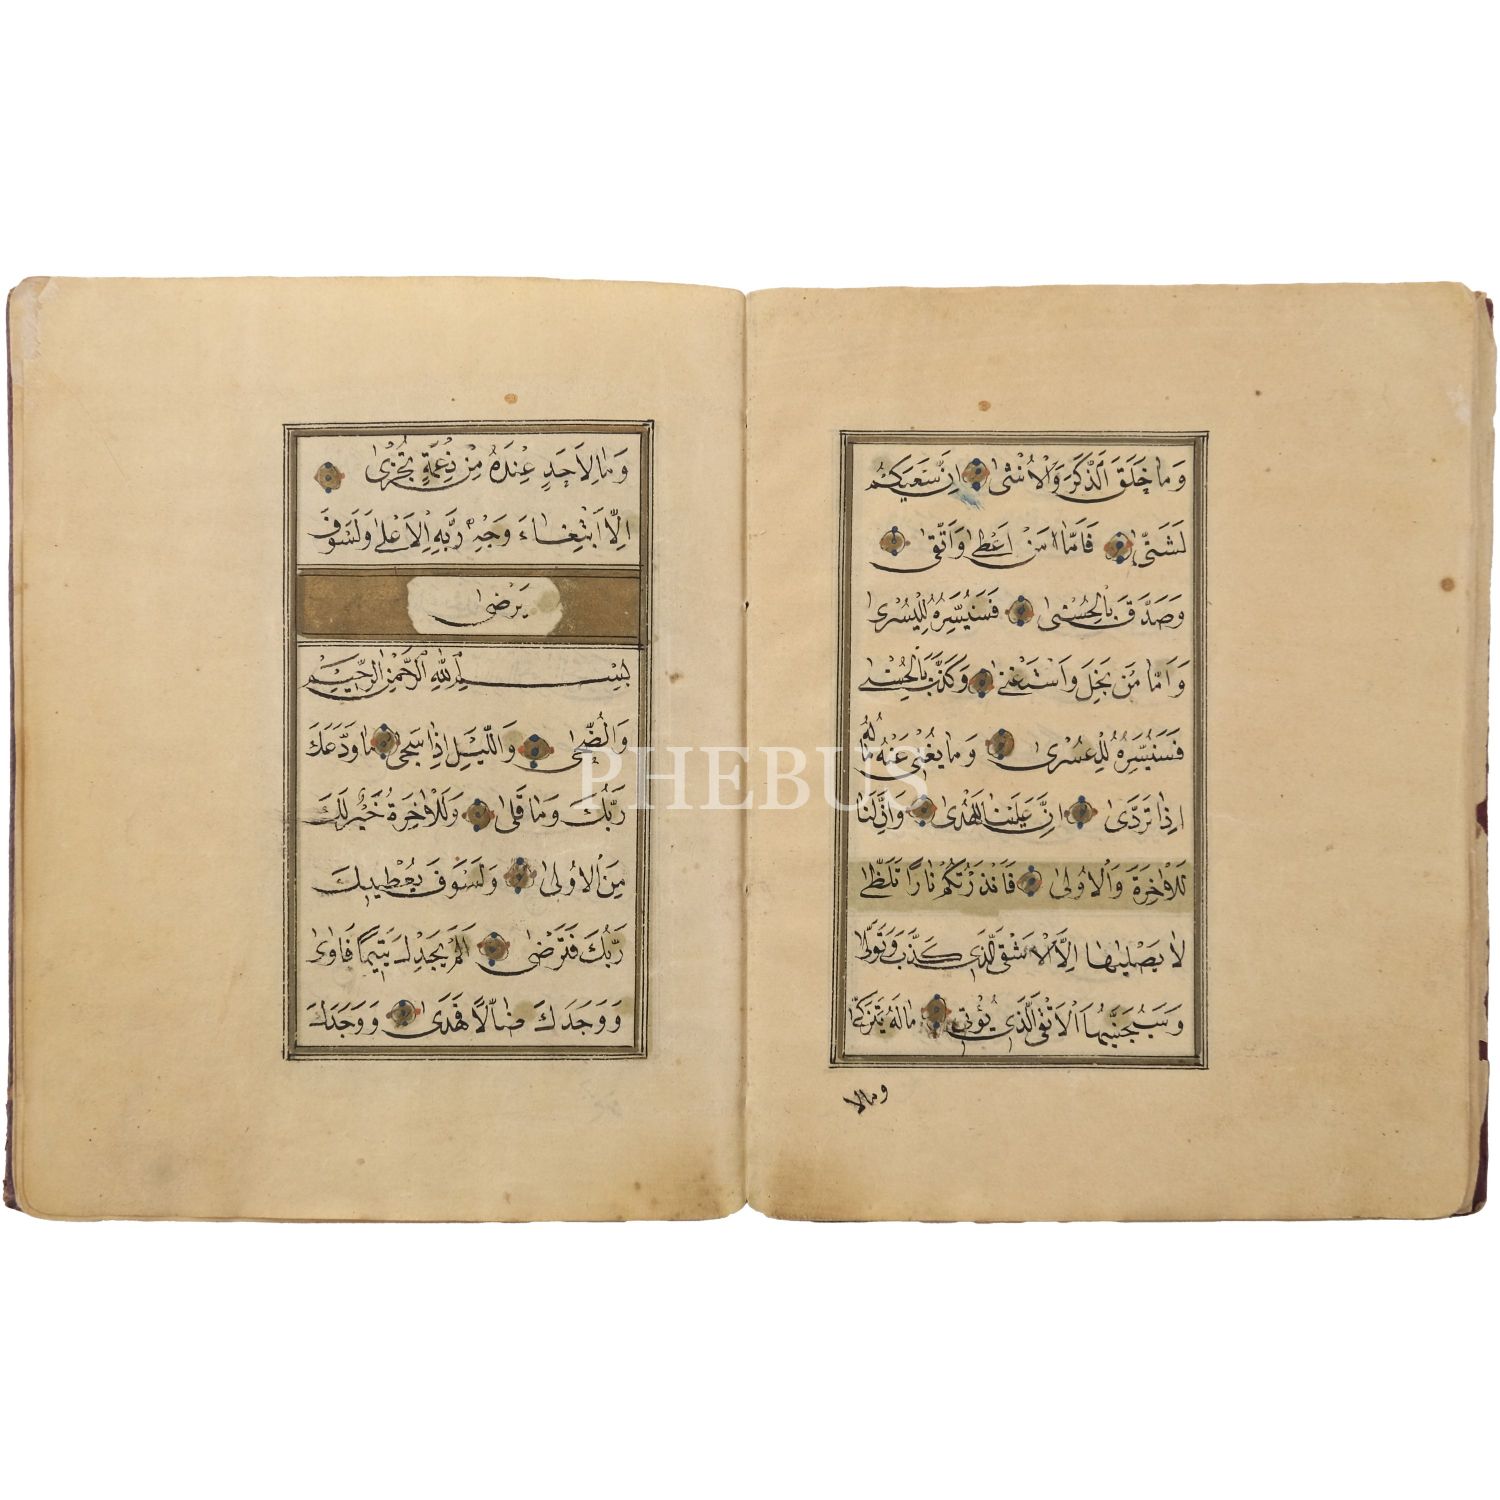 وَمَا خَلَقَ الذَّكَرَ وَالْاُنْثٰى اِنَّ سَعْيَكُمْ
لَشَتّٰى فَاَمَّا مَنْ اَعْطٰى وَاتَّقٰى
وَصَدَّقَ بِالْحُسْنٰى فَسَنُيَسِّرُهُ لِلْيُسْرٰى
وَاَمَّا مَنْ بَخِلَ وَاسْتَغْنٰى وَكَذَّبَ بِالْحُسْنٰى
فَسَنُيَسِّرُهُ لِلْعُسْرٰى وَمَا يُغْنٖى عَنْهُ مَالُهُ
اِذَا تَرَدّٰى اِنَّ عَلَيْنَا لَلْهُدٰى وَاِنَّ لَنَا
لَلْاٰخِرَةَ وَالْاُولٰى فَاَنْذَرْتُكُمْ نَارًا تَلَظّٰى
لَا يَصْلٰيهَا اِلَّا الْاَشْقَى الَّذٖى كَذَّبَ وَتَوَلّٰى
وَسَيُجَنَّبُهَا الْاَتْقَى الَّذٖى يُؤْتٖى مَالَهُ يَتَزَكّٰى
ومالا
وَمَا لِاَحَدٍ عِنْدَهُ مِنْ نِعْمَةٍ تُجْزٰى
اِلَّا ابْتِغَاءَ وَجْهِ رَبِّهِ الْاَعْلٰى وَلَسَوْفَ
يَرْضٰى
بِسْمِ اللّٰهِ الرَّحْمٰنِ الرَّحٖيمِ
وَالضُّحٰى وَاللَّيْلِ اِذَا سَجٰى مَا وَدَّعَكَ
رَبُّكَ وَمَا قَلٰى وَلَلْاٰخِرَةُ خَيْرٌ لَكَ
مِنَ الْاُولٰى وَلَسَوْفَ يُعْطٖيكَ
رَبُّكَ فَتَرْضٰى اَلَمْ يَجِدْكَ يَتٖيمًا فَاٰوٰى
وَوَجَدَكَ ضَالًّا فَهَدٰى وَوَجَدَكَ
PHEBUS